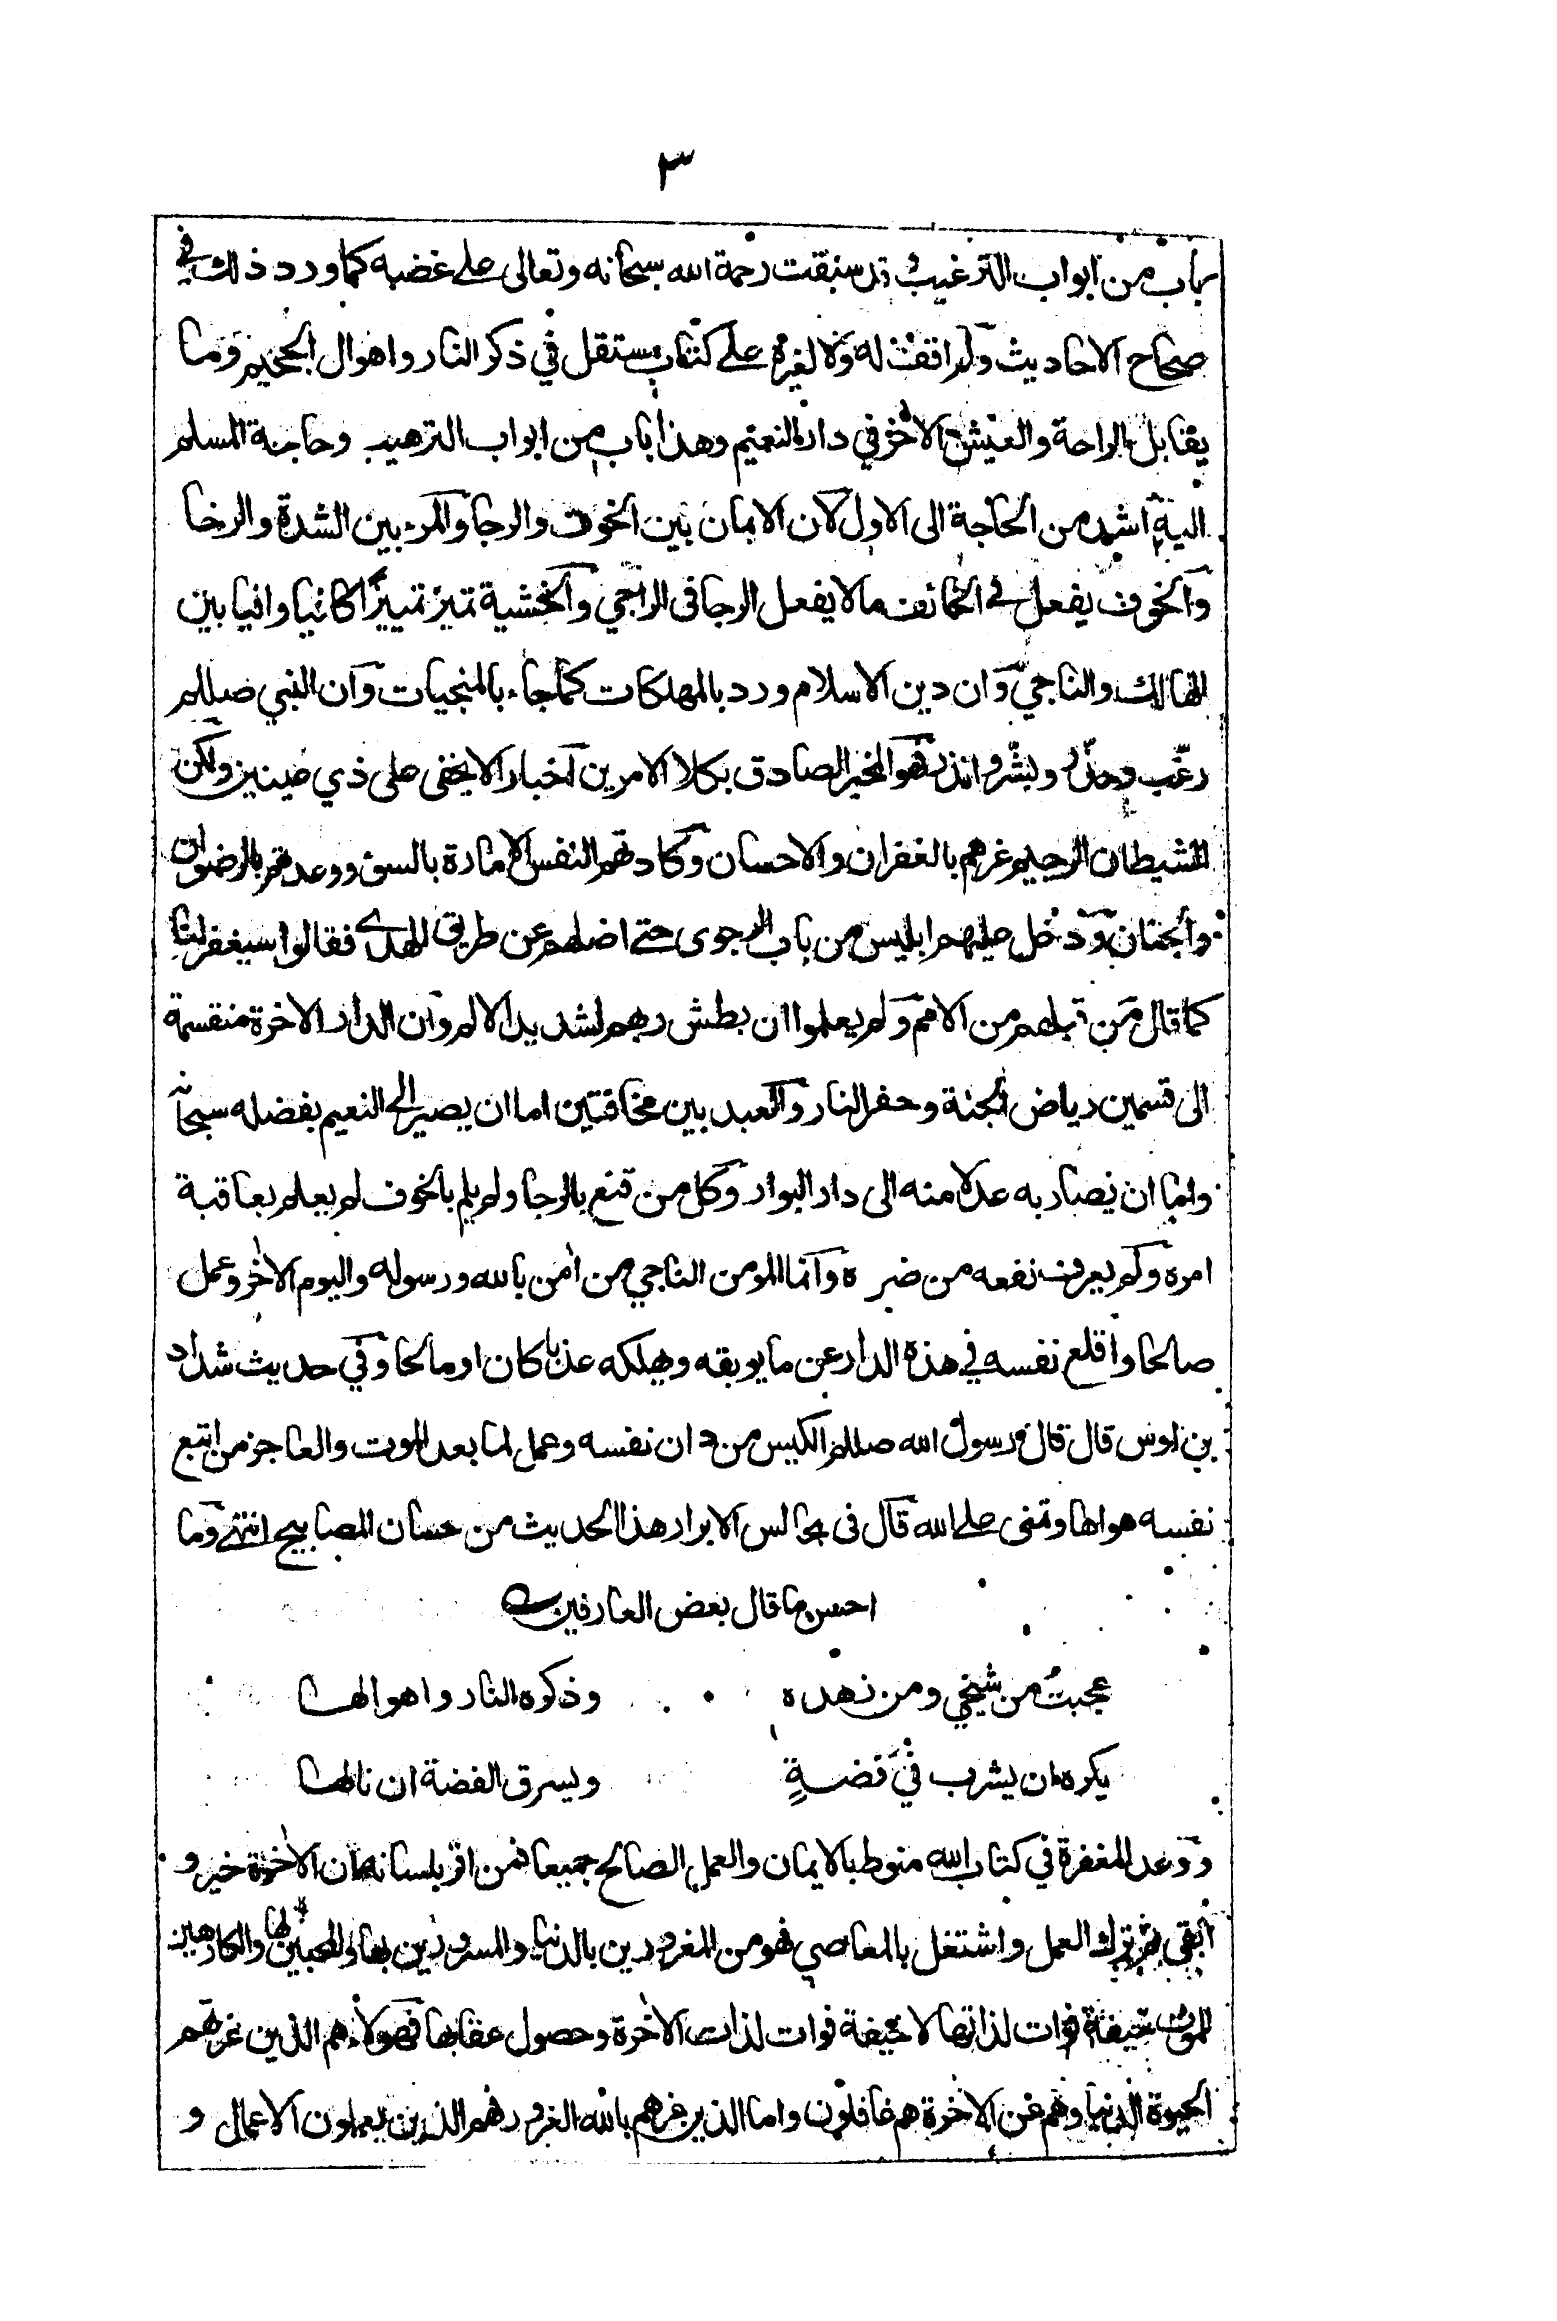 ٣
باب من ابواب الترغيب قد سبقت رحمة الله سبحانه وتعالى على غضبه كما ورد ذلك في
صحاح الاحاديث ولم اقف له ولا لغيره على كتاب مستقل في ذكر النار واهوال الجحيم وما
يقابل الراحة والعيش الاخر في دار النعيم وهذا باب من ابواب الترهيب وحاجة المسلم
اليه اشد من الحاجة الى الاول لان الايمان بين الخوف والرجا والمرء بين الشدة والرخا
والخوف يفعل في الخائف مالا يفعل الرجا في الراجي والخشية تميز تمييزًا كافيا وافيا بين
الهالك والناجي وان دين الاسلام ورد بالمهلكات كما جاء بالمنجيات وان النبي صللم
رغّب وحذّر وبشّر وانذر فهو المخبر الصادق بكلا الامرين اخبارا لا يخفى على ذي عينين ولكن
الشيطان الرجيم غرهم بالغفران والاحسان وكادتهم النفس الامارة بالسوء ووعدتهم بالرضوان
والجنان ودخل عليهم ابليس من باب الرجوى حتى اضلهم عن طريق الهدى فقالوا سيغفر لنا
كما قال من قبلهم من الامم ولم يعلموا ان بطش ربهم لشديد الالم وان الدار الاخرة منقسمة
الى قسمين رياض الجنة وحفر النار والعبد بين مخافتين اما ان يصير الى النعيم بفضله سبحانه
واما ان يصار به عدلا منه الى دار البوار وكل من قنع بالرجا ولم يلم بالخوف لم يعلم بعاقبة
امره ولم يعرف نفعه من ضره وانما المومن الناجي من اٰمن بالله ورسوله واليوم الاٰخر وعمل
صالحا واقلع نفسه في هذه الدار عن ما يوبقه ويهلكه عذبا كان او مالحا وفي حديث شداد
بن اوس قال قال رسول الله صللم الكيس من دان نفسه وعمل لما بعد الموت والعاجز من اتبع
نفسه هواها وتمنى على الله قال في مجالس الابرار هذا الحديث من حسان المصابيح انتهى وما
احسن ما قال بعض العارفين
عجبت من شيخي ومن زهده وذكره النار واهوالها
يكره ان يشرب في فضةٍ ويسرق الفضة ان نالها
ووعد المغفرة في كتاب الله منوط بالايمان والعمل الصالح جميعا فمن اقر بلسانه ان الاٰخرة خير و
ابقى ثم ترك العمل واشتغل بالمعاصي فهو من المغرورين بالدنيا والمسرورين بها والمحبين لها والكارهين
للموت خيفة فوات لذاتها لا خيفة فوات لذات الاٰخرة وحصول عقابها فهولاء هم الذين غرتهم
الحيوة الدنيا وهم عن الاٰخرة هم غافلون واما الذين غرهم بالله الغرور فهم الذين يعملون الاعمال و